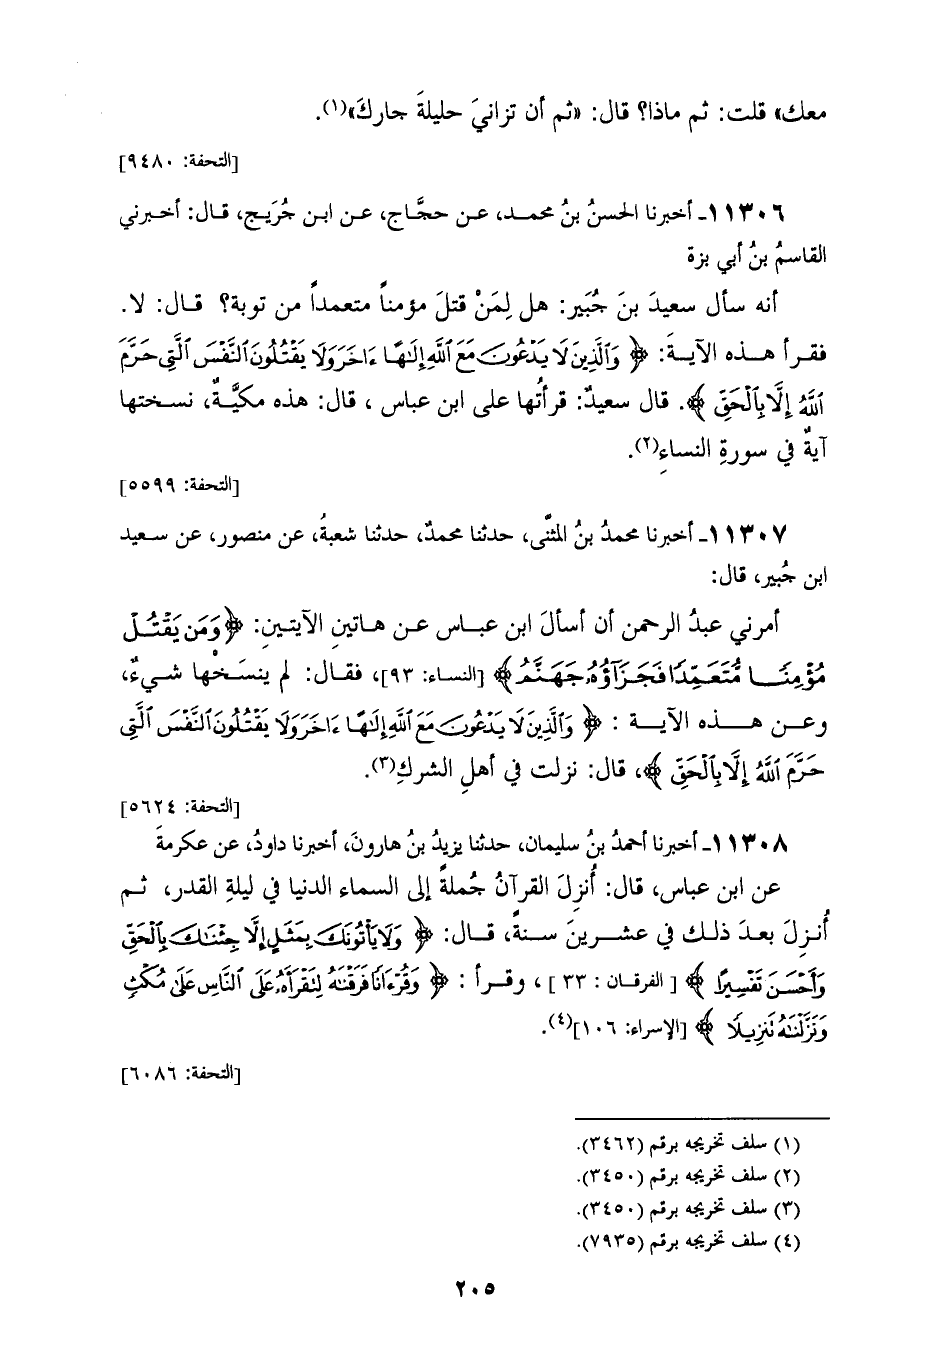 معك» قلت: ثم ماذا؟ قال: «ثم أن تزانيَ حليلةَ جارك»(١).
[التحفة: ٩٤٨٠]
١١٣٠٦ـ أخبرنا الحسنُ بنُ محمد، عن حجَّاج، عن ابن جُرَيج، قال: أخبرني
القاسمُ بنُ أبي بزة
أنه سأل سعيدَ بنَ جُبَير: هل لِمَنْ قتلَ مؤمناً متعمداً من توبة؟ قال: لا.
فقرأ هذه الآيةَ: ﴿ وَٱلَّذِينَ لَا يَدْعُونَ مَعَ ٱللَّهِ إِلَٰهًا ءَاخَرَ وَلَا يَقْتُلُونَ ٱلنَّفْسَ ٱلَّتِى حَرَّمَ
ٱللَّهُ إِلَّا بِٱلْحَقِّ ﴾. قال سعيدٌ: قرأتُها على ابن عباس ، قال: هذه مكيَّةٌ، نسختها
آيةٌ في سورةِ النساءِ(٢).
[التحفة: ٥٥٩٩]
١١٣٠٧ـ أخبرنا محمدُ بنُ المثنَّى، حدثنا محمدٌ، حدثنا شعبةُ، عن منصور، عن سعيد
ابن جُبير، قال:
أمرني عبدُ الرحمن أن أسألَ ابن عباس عن هاتينِ الآيتينِ: ﴿ وَمَن يَقْتُلْ
مُؤْمِنًا مُّتَعَمِّدًا فَجَزَآؤُهُۥ جَهَنَّمُ ﴾ [النساء: ٩٣]، فقال: لم ينسَخْها شيءٌ،
وعن هذه الآية : ﴿ وَٱلَّذِينَ لَا يَدْعُونَ مَعَ ٱللَّهِ إِلَٰهًا ءَاخَرَ وَلَا يَقْتُلُونَ ٱلنَّفْسَ ٱلَّتِى
حَرَّمَ ٱللَّهُ إِلَّا بِٱلْحَقِّ ﴾، قال: نزلت في أهلِ الشركِ(٣).
[التحفة: ٥٦٢٤]
١١٣٠٨ـ أخبرنا أحمدُ بنُ سليمان، حدثنا يزيدُ بنُ هارونَ، أخبرنا داودُ، عن عكرمةَ
عن ابن عباس، قال: أُنزلَ القرآنُ جُملةً إلى السماء الدنيا في ليلةِ القدر، ثم
أُنزلَ بعدَ ذلك في عشرينَ سنةً، قال: ﴿ وَلَا يَأْتُونَكَ بِمَثَلٍ إِلَّا جِئْنَٰكَ بِٱلْحَقِّ
وَأَحْسَنَ تَفْسِيرًا ﴾ [ الفرقان : ٣٣ ] ، وقرأ : ﴿ وَقُرْءَانًا فَرَقْنَٰهُ لِتَقْرَأَهُۥ عَلَى ٱلنَّاسِ عَلَىٰ مُكْثٍ
وَنَزَّلْنَٰهُ تَنزِيلًا ﴾ [الإسراء: ١٠٦](٤).
[التحفة: ٦٠٨٦]
(١) سلف تخريجه برقم (٣٤٦٢).
(٢) سلف تخريجه برقم (٣٤٥٠).
(٣) سلف تخريجه برقم (٣٤٥٠).
(٤) سلف تخريجه برقم (٧٩٣٥).
٢٠٥